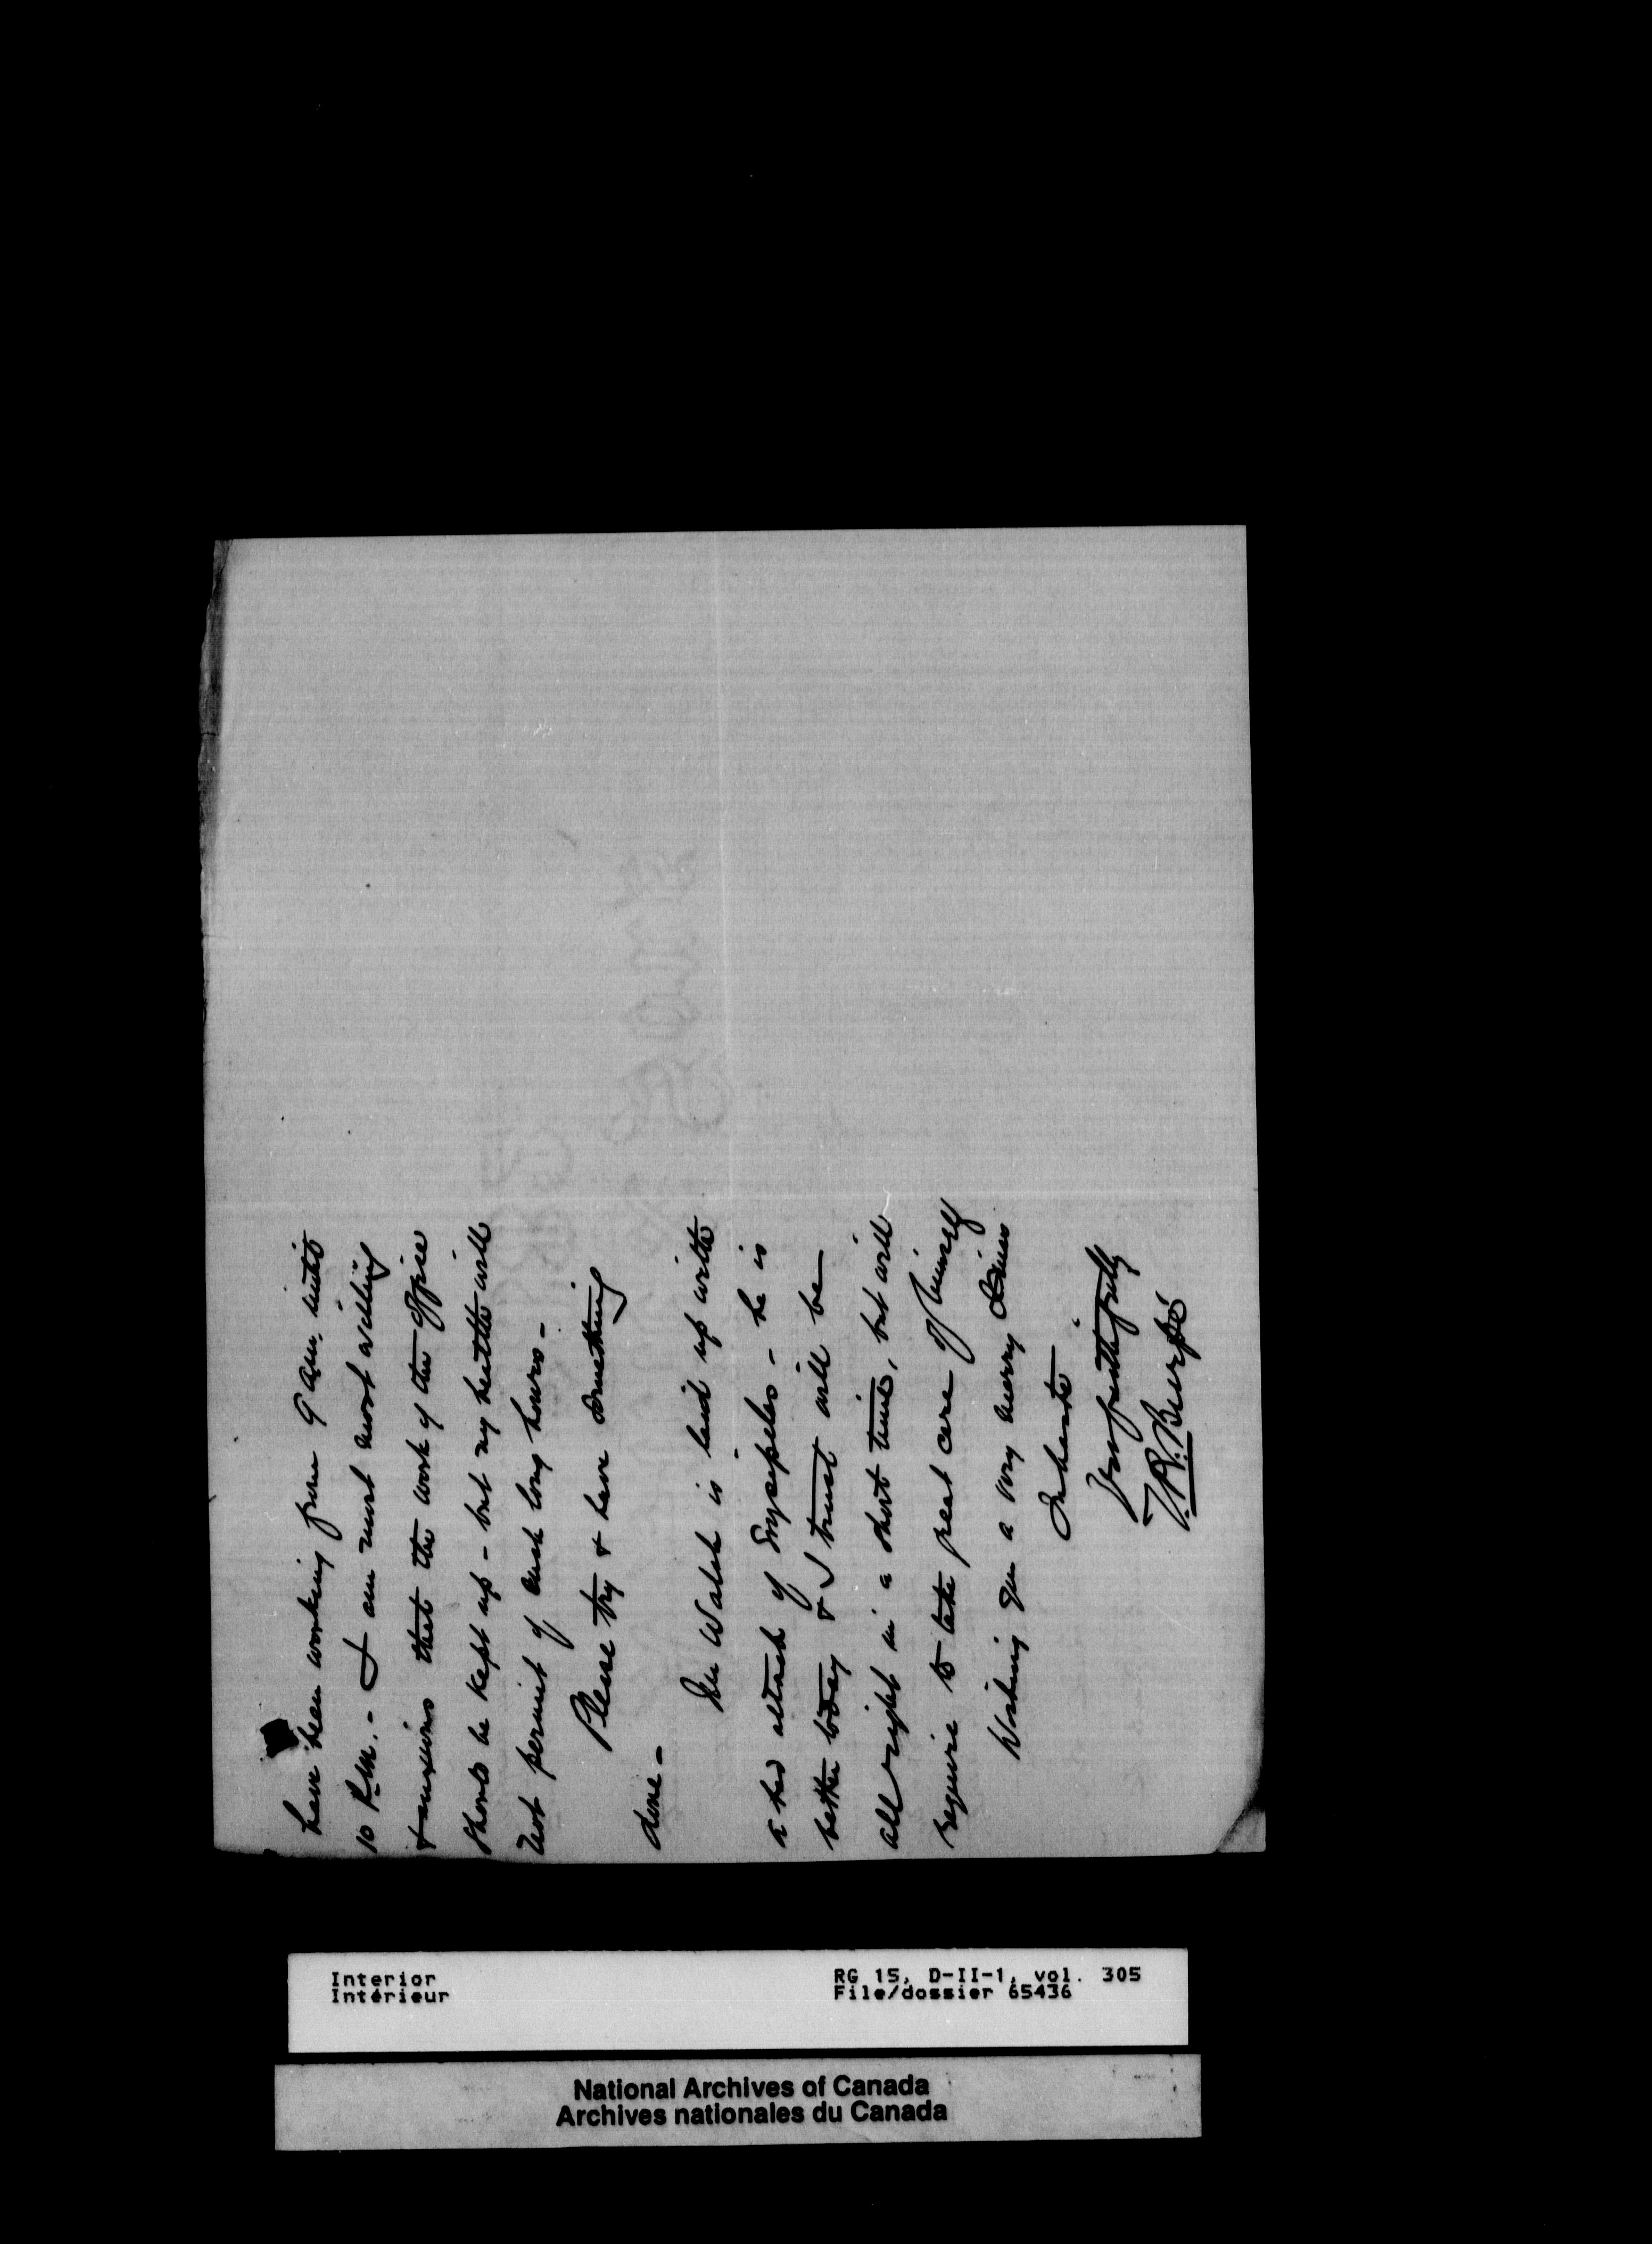 have been working from 9 am. until
10 P.M. - I am most most willing
& anxious that the work of the office
should be kept up - but my health will
not permit of such long hours -
Please try & have something
done -
Mr Walsh is laid up with
a bad attack of Erysipelas - he is
better today & I trust will be
all right in a short time, but will
require to take great care of himself
Wishing you a very merry Xmas
In haste
Yours faithfully
Interior
Intérieur
RG 15, D-II-1, vol. 305
File/dossier 65436
National Archives of Canada
Archives nationales du Canada